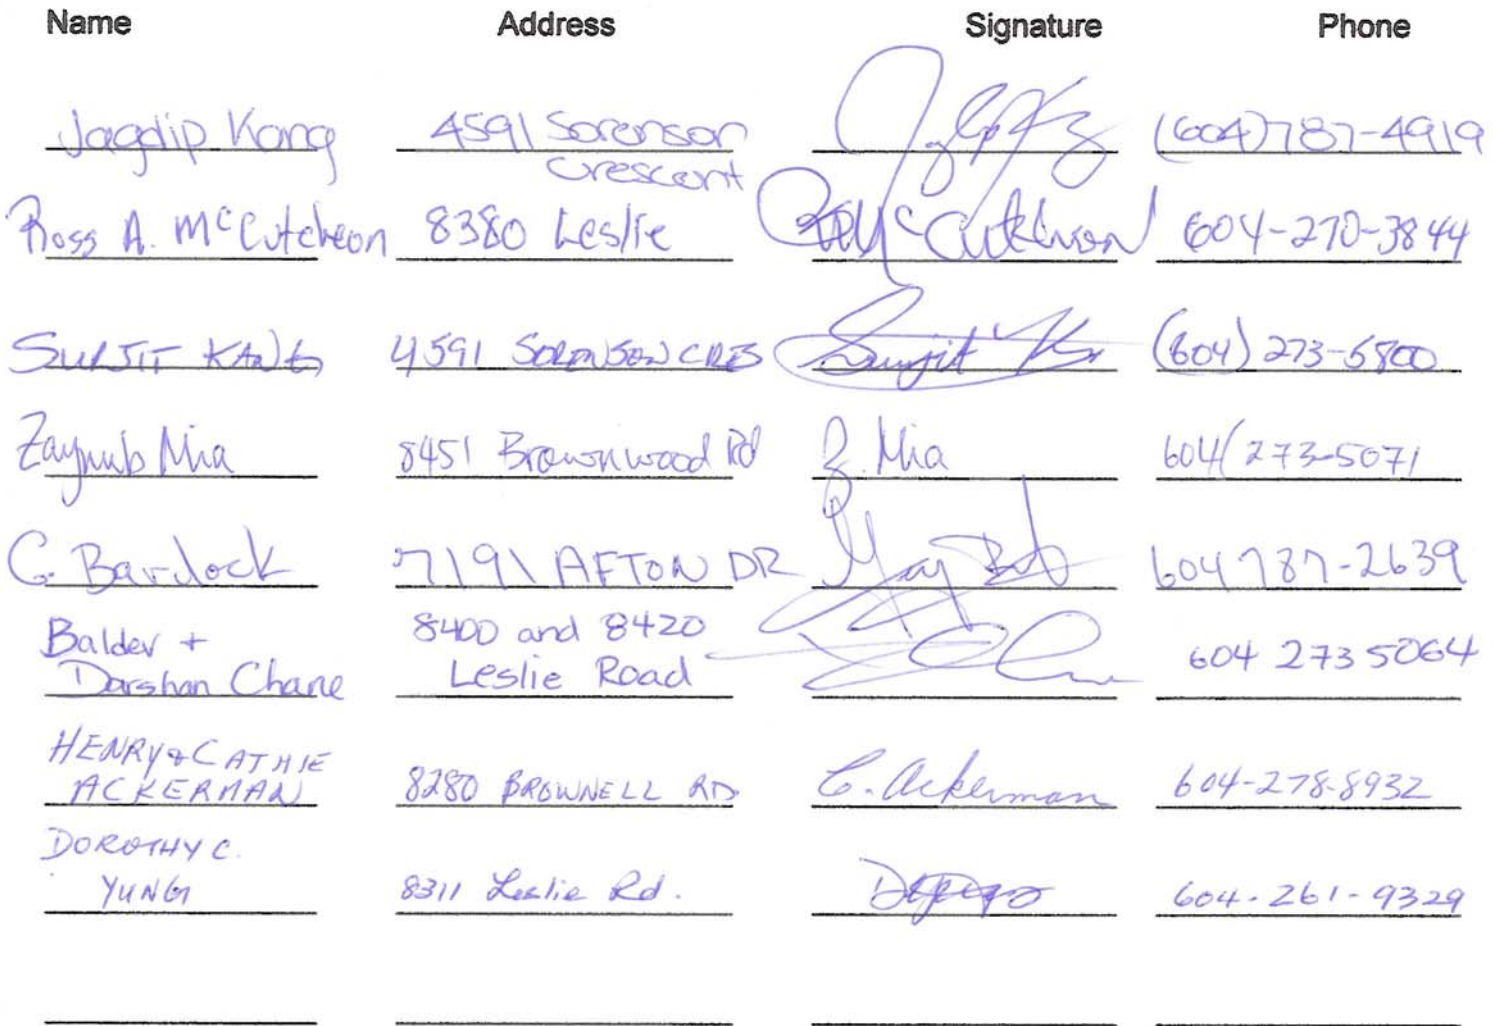 Name Address Signature Phone
Jagdip Kang 4591 Sorenson (604)787-4919
Crescent
Ross A. McCutcheon 8380 Leslie McCutcheon 604-270-3844
SURJIT KANG 4591 SORENSON CRES Surjit (604) 273-5800
Zaynub Mia 8451 Brownwood Rd Z. Mia 604/273-5071
G. Bardock 7191 AFTON DR 604 787-2639
Baldev + 8400 and 8420
Darshan Chane Leslie Road 604 273 5064
HENRY & CATHIE
ACKERMAN 8280 BROWNELL RD C. Ackerman 604-278-8932
DOROTHY C.
YUNG 8311 Leslie Rd. 604-261-9329